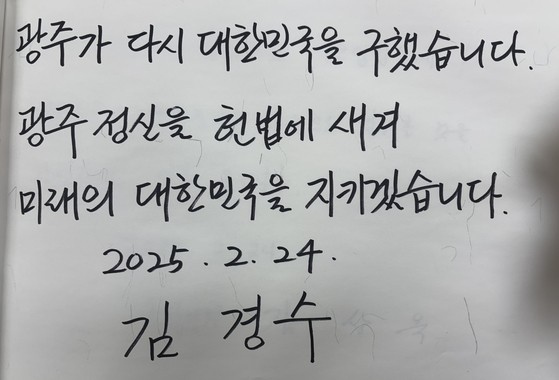 광주가 다시 대한민국을 구했습니다.
광주 정신을 헌법에 새겨
미래의 대한민국을 지키겠습니다.
2025. 2. 24.
김 경 수